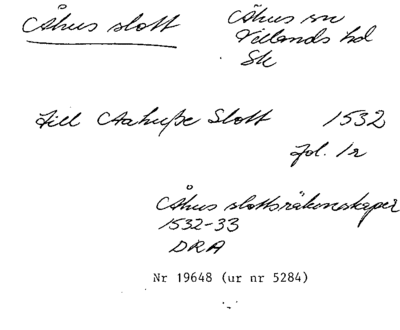 Åhus slott
Åhus sn
Villands hd
Sk
till Aahuße Slott 1532
fol. 1r
Åhus slottsräkenskaper
1532-33
DRA
Nr 19648 (ur nr 5284)